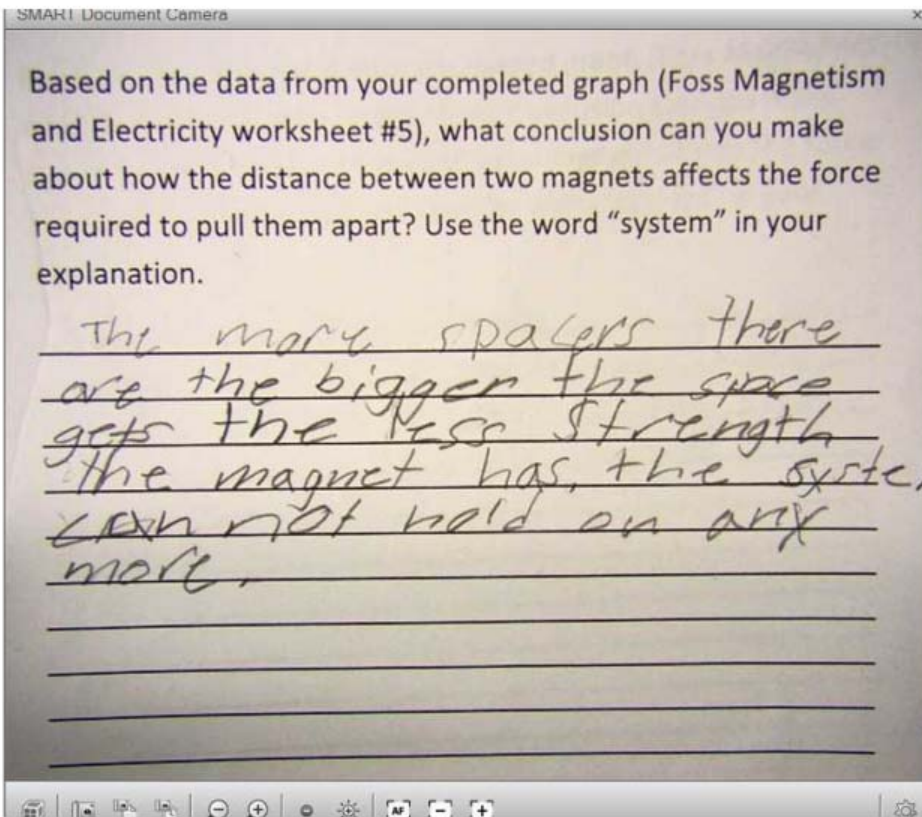 SMART Document Camera
Based on the data from your completed graph (Foss Magnetism
and Electricity worksheet #5), what conclusion can you make
about how the distance between two magnets affects the force
required to pull them apart? Use the word “system” in your
explanation.
The more spacers there
are the bigger the space
gets the less strength
the magnet has, the syste
can not hold on any
more.
AF